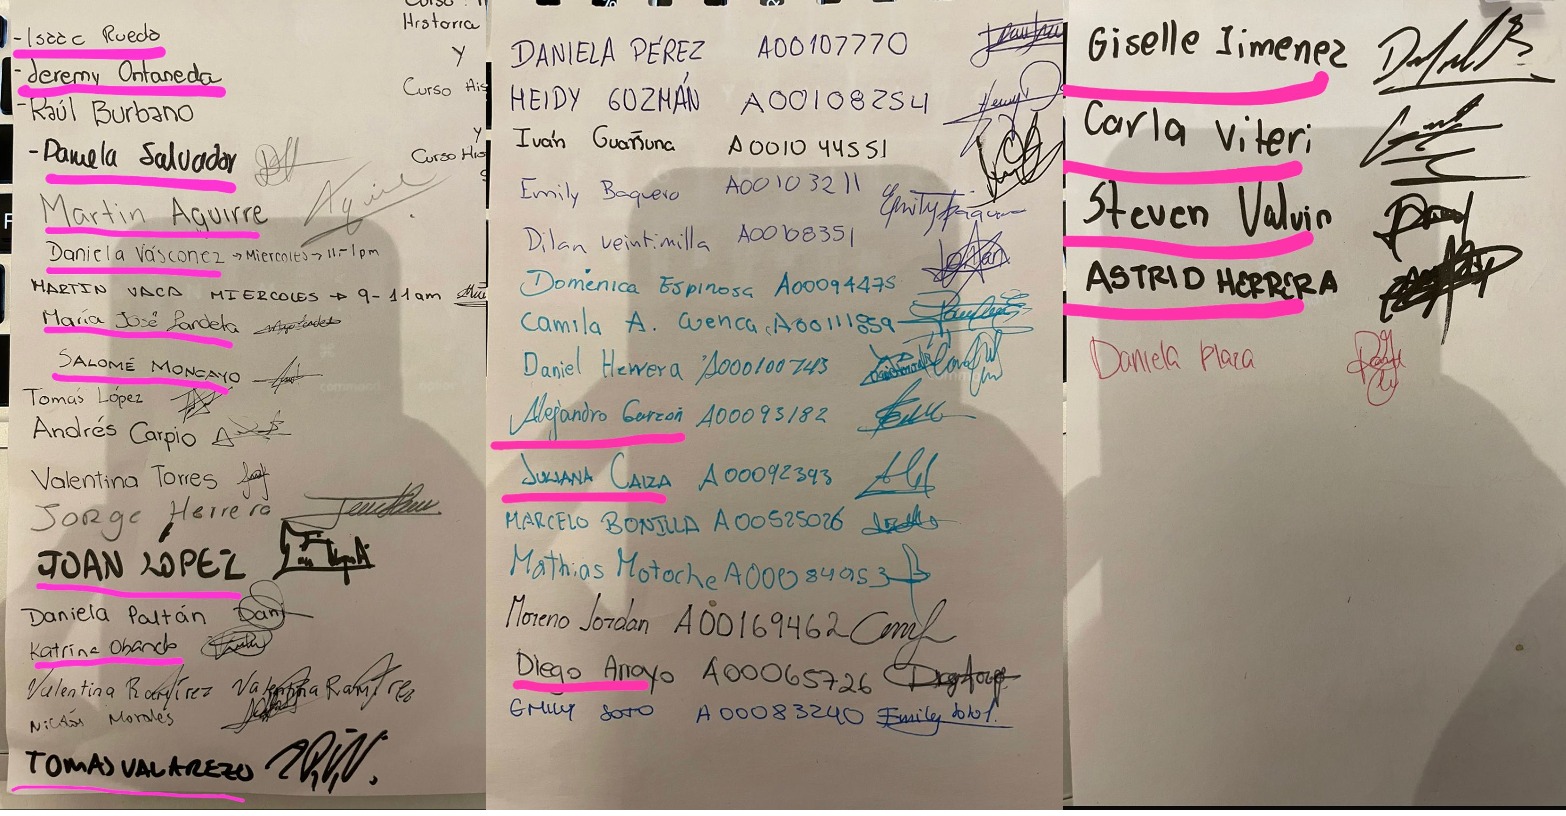 Curso
- Isaac Rueda
Historia
Y
- Jeremy Ontaneda
Curso His
- Raúl Burbano
Y
- Daniela Salvador
Curso His
Martin Aguirre
Daniela Vásconez → Miercoles → 11-1pm
MARTIN VACA MIERCOLES → 9-11am
María José Landeta
SALOMÉ MONCAYO
Tomás López
Andrés Carpio
Valentina Torres
Jorge Herrera
JOAN LOPEZ
Daniela Paltán Dani
Katrina Obando
Valentina Ramírez Valentina Ramírez
Nicolás Morales
TOMAS VALAREZO
DANIELA PÉREZ A00107770
HEIDY GUZMÁN A00108254
Iván Guañuna A001044551
Emily Baquero A00103211
Dilan Veintimilla A00108351
Doménica Espinosa A00094475
Camila A. Cuenca A00111859
Daniel Herrera A000100743
Alejandro Garzón A00093182
JULIANA CAIZA A00092393
MARCELO BONILLA A00525026
Mathias Motoche A00084953
Moreno Jordan A00169462
Diego Arroyo A00065726
EMILY SOTO A00083240 Emily Soto
Giselle Jimenez
Carla Viteri
Steven Valvin
ASTRID HERRERA
Daniela Plaza